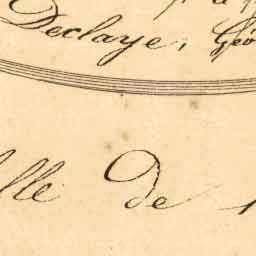 Declaye, Géo
lle De 1